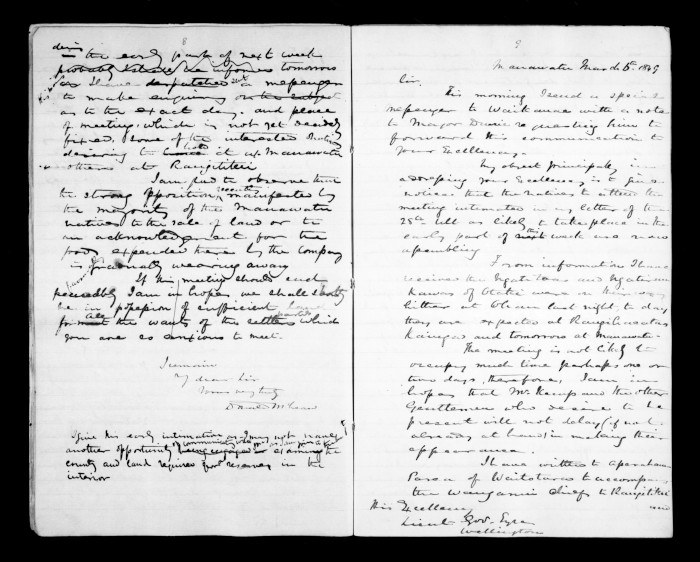 8
the early part of next week
tomorrow
as I have a messenger
to make enquiry on the subject
as to the exact day, and place
of meeting which is not yet decidedly
fixed. Some of the interested Natives
desiring to at up Manawatu
others at Rangitikei
I am glad to observe that
the strong opposition manifested by
the majority of the Manawatu
natives to the sale of land or to
an acknowledgement for the
food expended here by the Company
is gradually wearing away
If this meeting should end
peaceably I am in hopes we shall shortly
be in possession of sufficient land
for all the wants of the settlers which
you are so anxious to meet.
I remain
My dear Sir
Yours very truly
Donald McLean
I give this early intimation as I may not have
another opportunity being engaged in examining the
country and land requires for reserves in the
interior
9
Manawatu March 5th 1849
Sir,
This morning I send a special
messenger to Waikanae with a note
to Major Durie requesting him to
forward this communication to
Your Excellency.
My object principally in
addressing your Excellency is to give
notice that the natives to attend the
meeting intimated in my letter of the
25th ult as likely to take place in the
early part of this week are now
assembling
From information I have
received the Ngatiraukawas of Otaki were on their way
hither at Ohau last night, to day
they are expected at
Kaingas and tomorrow at Manawatu
The meeting is not likely to
occupy much time perhaps one or
two days, therefore, I am in
hopes that Mr Kemp and the other
Gentlemen who desire to be
present will not delay (if not
already at hand) in making their
appearance.
I have written to
of Waitotara to accompany
the Wanganui chiefs to Rangitikei
and
His Excellency
Lieut Gov. Eyre
Wellington